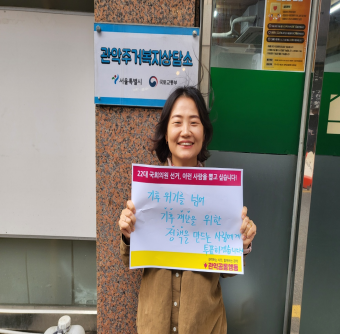 관악주거복지상담소
서울특별시 국토교통부
22대 국회의원 선거, 이런 사람을 뽑고 싶습니다!
기후 위기를 넘어
기후 정의를 위한
정책을 만드는 사람에게
투표하겠습니다
관악공동행동